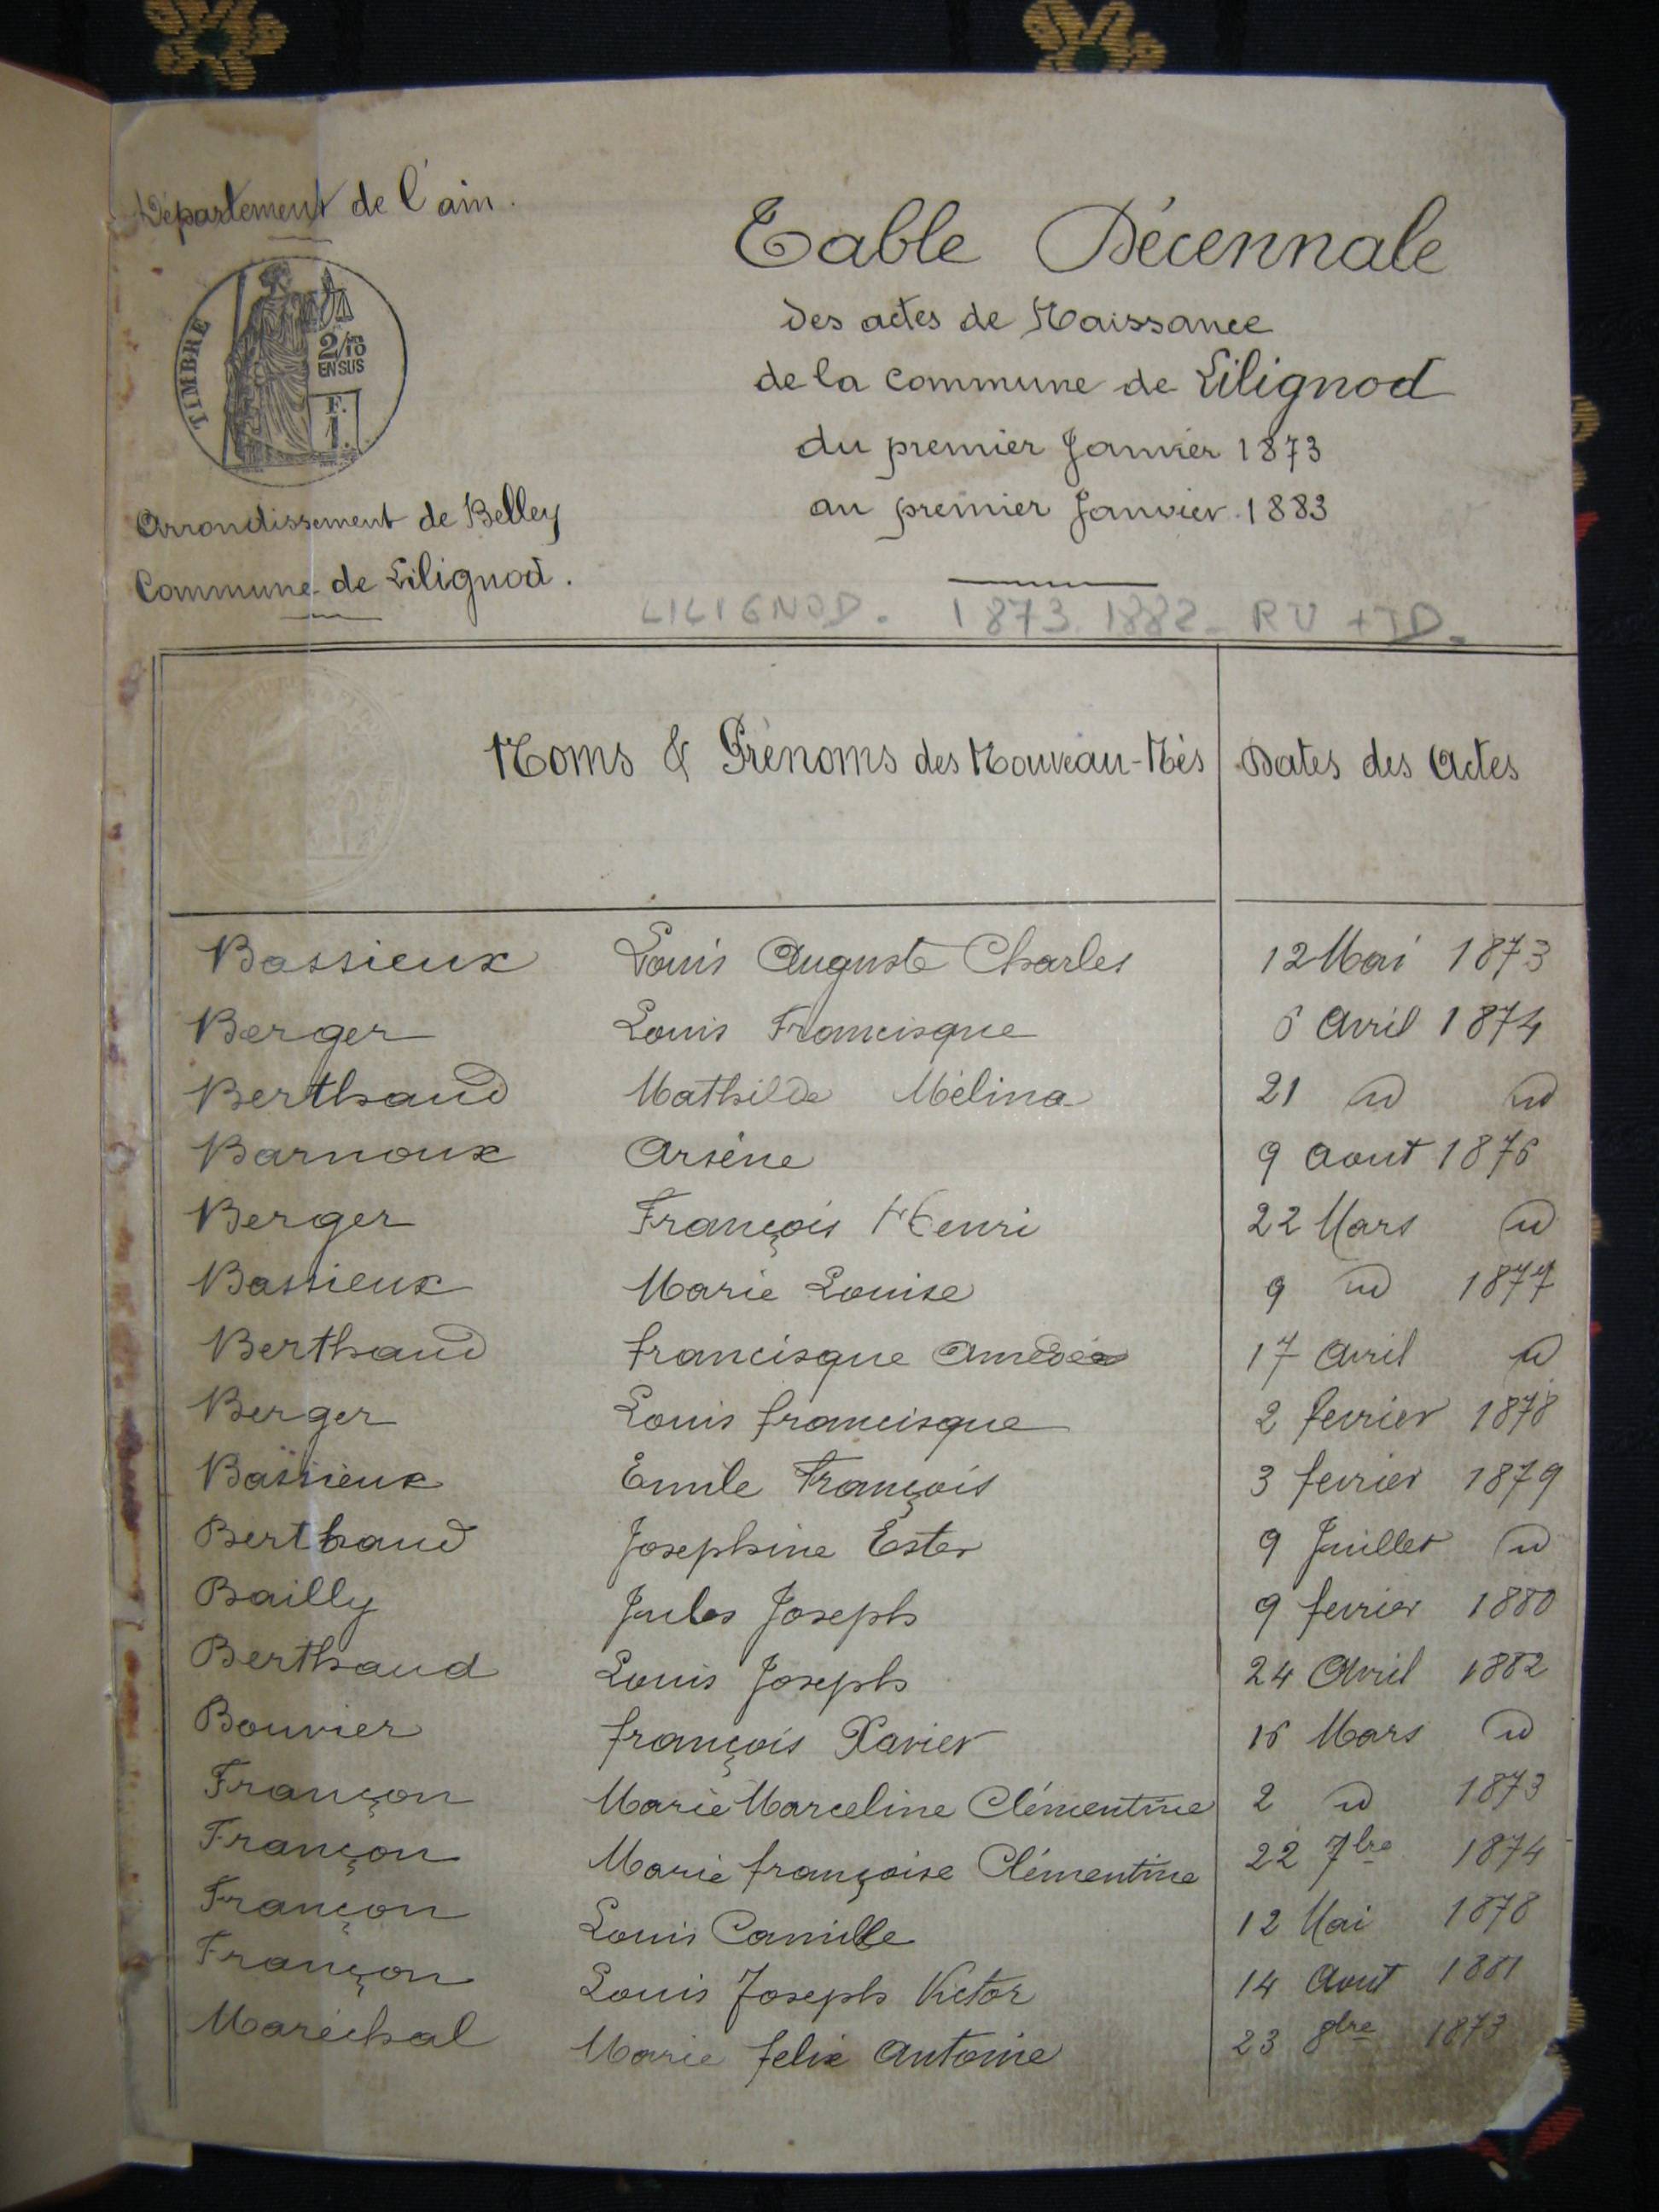 Département de l'ain.
TIMBRE
2/10
EN SUS
F.
1.
Arrondissement de Belley
Commune de Lilignod.
Table Décennale
des actes de Naissance
de la commune de Lilignod
du premier Janvier 1873
au premier Janvier 1883
LILIGNOD. 1873.1882_ RV + TD_
Noms & Prénoms des Nouveau-Nés Dates des Actes
Bassieux Louis Auguste Charles 12 Mai 1873
Berger Louis Francisque 6 Avril 1874
Berthaud Mathilde Mélina 21 id id
Barnoux Arsène 9 Aout 1876
Berger François Henri 22 Mars id
Bassieux Marie Louise 9 id 1877
Berthaud francisque Amédée 17 Avril id
Berger Louis francisque 2 fevrier 1878
Bassieux Emile François 3 fevrier 1879
Berthaud Josephine Ester 9 Juillet id
Bailly Jules Joseph 9 fevrier 1880
Berthaud Louis Joseph 24 Avril 1882
Bouvier françois Xavier 16 Mars id
Françon Marie Marceline Clémentine 2 id 1873
Françon Marie françoise Clémentine 22 7bre 1874
Françon Louis Camille 12 Mai 1878
Françon Louis Joseph Victor 14 Aout 1881
Maréchal Marie felix Antoine 23 8bre 1873